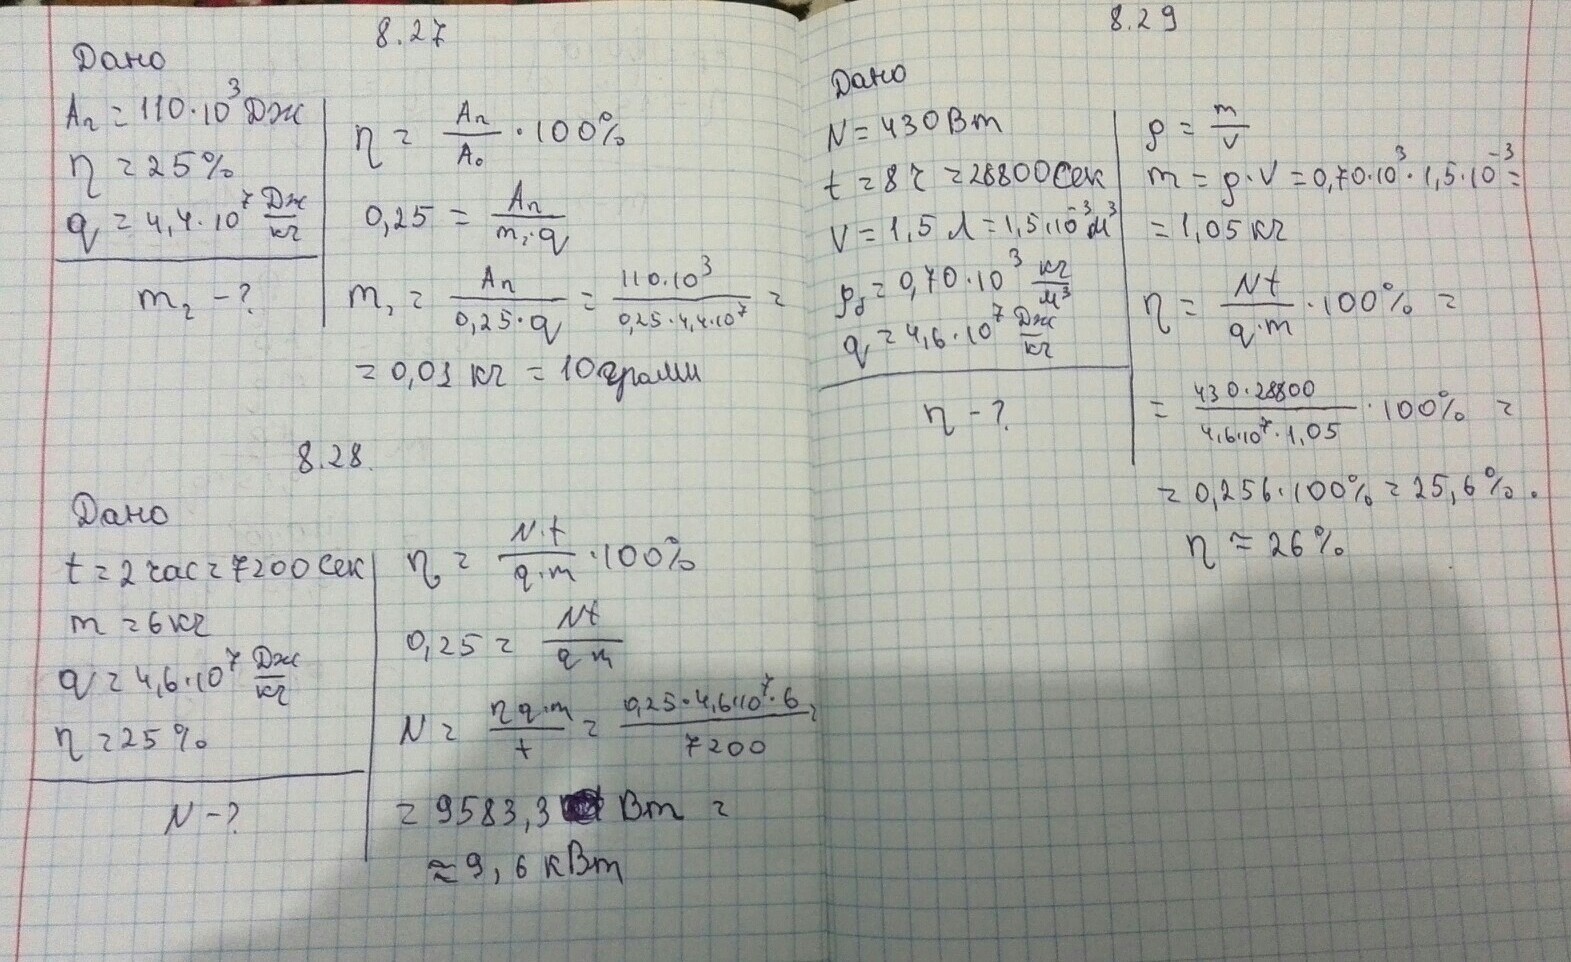 8.27
Дано
Aп = 110·10³ Дж
η = 25%
q = 4,4·10⁷ Дж/кг
m₂ - ?
η = Aп/A₀ · 100%
0,25 = Aп/(m₂·q)
m₂ = Aп/(0,25·q) = 110·10³/(0,25·4,4·10⁷) =
= 0,01 кг = 10 грамм
8.28.
Дано
t = 2 час = 7200 сек
m = 6 кг
q = 4,6·10⁷ Дж/кг
η = 25%
N - ?
η = N·t/(q·m) · 100%
0,25 = Nt/(q m)
N = η q·m/t = 0,25·4,6·10⁷·6/7200 =
= 9583,3 Вт =
≈ 9,6 кВт
8.29
Дано
N = 430 Вт
t = 8 ч = 28800 сек
V = 1,5 л = 1,5·10⁻³ м³
ρδ = 0,70·10³ кг/м³
q = 4,6·10⁷ Дж/кг
η - ?
ρ = m/V
m = ρ·V = 0,70·10³·1,5·10⁻³ =
= 1,05 кг
η = Nt/(q·m) · 100% =
= 430·28800/(4,6·10⁷·1,05) · 100% =
= 0,256·100% = 25,6%.
η ≈ 26%